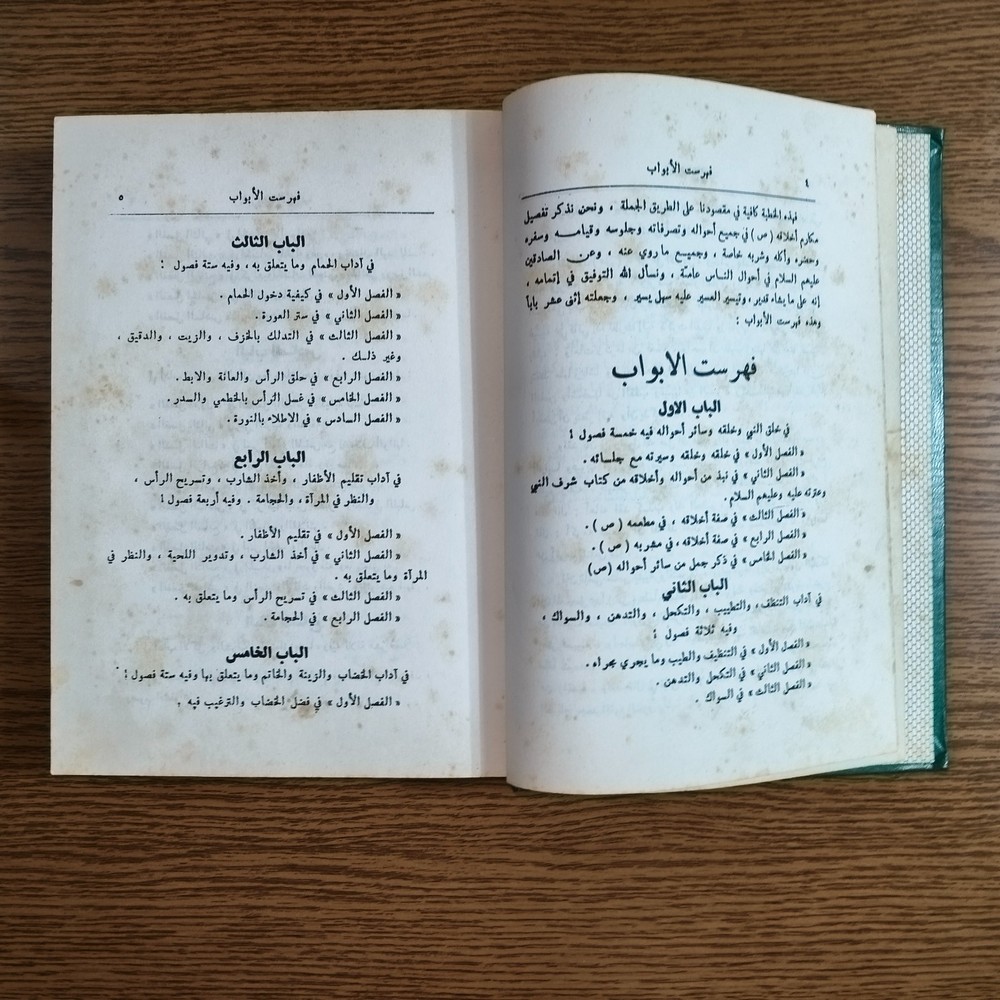 ٤
فهرست الأبواب
فهذه الخطبة كافية في مقصودنا على الطريق الجملة ، ونحن نذكر تفصيل
مكارم أخلاقه ( ص ) في جميع أحواله وتصرفاته وجلوسه وقيامه وسفره
وحضره وأكله وشربه خاصة ، وجميع ما روي عنه ، وعن الصادقين
عليهم السلام في أحوال الناس عامة ، ونسأل الله التوفيق في إتمامه ،
إنه على ما يشاء قدير ، وتيسير العسير عليه سهل يسير ، وجعلته إثنى عشر باباً
وهذه فهرست الأبواب :
فهرست الأبواب
الباب الاول
في خلق النبي وخلقه وسائر أحواله فيه خمسة فصول !
« الفصل الأول » في خلقه وخلقه وسيرته مع جلسائه .
« الفصل الثاني » في نبذ من أحواله وأخلاقه من كتاب شرف النبي
وعترته عليه وعليهم السلام .
« الفصل الثالث » في صفة أخلاقه ، في مطعمه ( ص ) .
« الفصل الرابع » في صفة أخلاقه ، في مشربه ( ص ) .
« الفصل الخامس » في ذكر جمل من سائر أحواله ( ص )
الباب الثاني
في آداب التنظف ، والتطييب ، والتكحل ، والتدهن ، والسواك ،
وفيه ثلاثة فصول !
« الفصل الأول » في التنظيف والطيب وما يجري مجراه .
« الفصل الثاني » في التكحل والتدهن .
« الفصل الثالث » في السواك .
فهرست الأبواب
٥
الباب الثالث
في آداب الحمام وما يتعلق به ، وفيه ستة فصول !
« الفصل الأول » في كيفية دخول الحمام .
« الفصل الثاني » في ستر العورة .
« الفصل الثالث » في التدلك بالخزف ، والزيت ، والدقيق ،
وغير ذلك .
« الفصل الرابع » في حلق الرأس والعانة والابط .
« الفصل الخامس » في غسل الرأس بالخطمي والسدر .
« الفصل السادس » في الاطلاء بالنورة .
الباب الرابع
في آداب تقليم الأظفار ، وأخذ الشارب ، وتسريح الرأس ،
والنظر في المرآة ، والحجامة . وفيه أربعة فصول !
« الفصل الأول » في تقليم الأظفار .
« الفصل الثاني » في أخذ الشارب ، وتدوير اللحية ، والنظر في
المرآة وما يتعلق به .
« الفصل الثالث » في تسريح الرأس وما يتعلق به .
« الفصل الرابع » في الحجامة .
الباب الخامس
في آداب الخضاب والزينة والخاتم وما يتعلق بها وفيه ستة فصول !
« الفصل الأول » في فضل الخضاب والترغيب فيه .